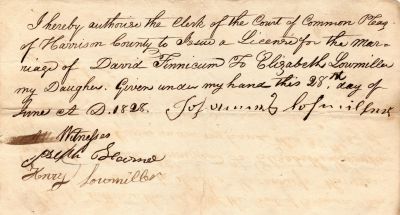 I hereby authorise the Clerk of the Court of Common Pleas
of Harrison County to Issue a Licence for the Mar-
riage of David Finnicum To Elizabeth Lowmiller
my Daugher. Given under my hand this 28th day of
June A D. 1828.
Witnesses
Joseph
Henry Lowmiller